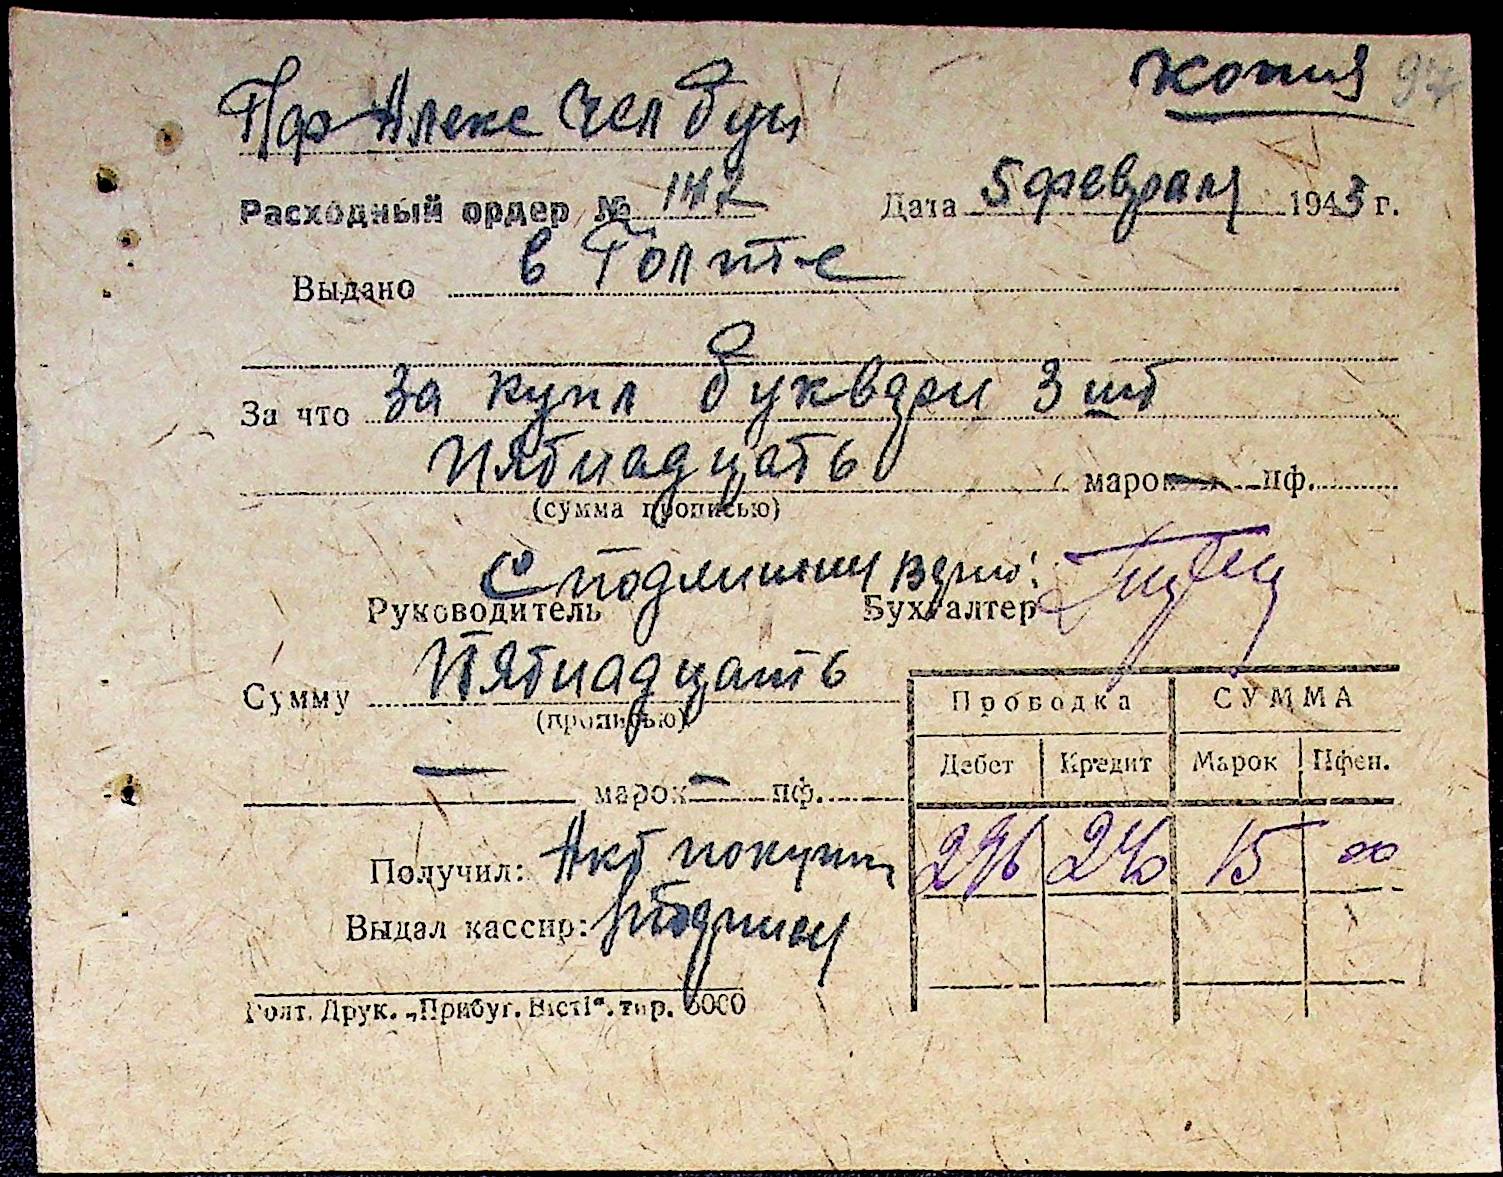 копия 94
Пр Алекс Чел
Расходный ордер № 142 Дата 5 феврал 1943 г.
Выдано в Голте
За что за купл буквари 3 шт
Пятнадцать марок — пф.
(сумма прописью)
С подлинным верно:
Руководитель Бухгалтер
Сумму Пятнадцать
(прописью)
— марок — пф.
Проводка СУММА
Дебет Кредит Марок Пфен.
296 240 15 00
Получил: Акт покупки
Выдал кассир:
Голт. Друк. „Прибуг. Вісті“. тир. 6000